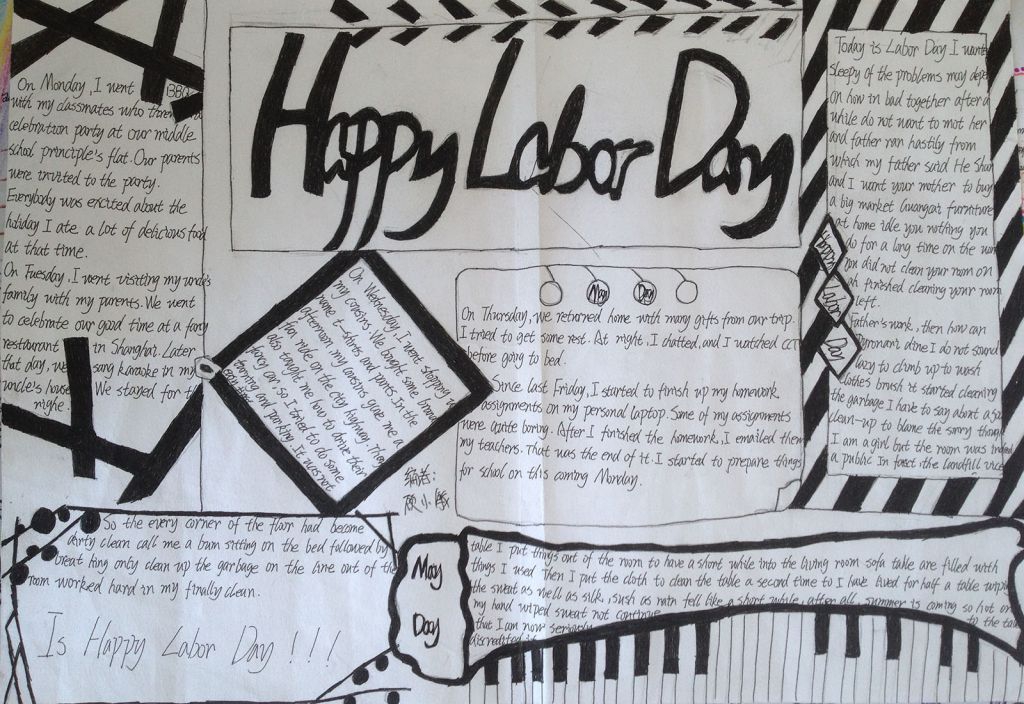 Happy Labor Day
On Monday, I went BBQ
with my classmates who threw a
celebration party at our middle
school principle's flat. Our parents
were invited to the party.
Everybody was excited about the
holiday I ate a lot of delicious food
at that time.
On Tuesday, I went visiting my uncle's
family with my parents. We went
to celebrate our good time at a fancy
restaurant in Shanghai. Later
that day, we sang karaoke in my
uncle's house We stayed for the
night.
On Wednesday, I went shopping w
my cousins. We bought some brand
name t-shirts and pants. In the
afternoon, my cousins gave me a
fun ride on the city highway. They
also taught me how to drive their
fancy car so I tried to do some
turning and parking. It was not
May Day
On Thursday, we returned home with many gifts from our trip.
I tried to get some rest. At night, I chatted, and I watched CCT
before going to bed.
Since last Friday, I started to finish up my homework
assignments on my personal laptop. Some of my assignments
were quite boring. After I finished the homework, I emailed them
my teachers. That was the end of it. I started to prepare things
for school on this coming Monday.
编者:
Today is Labor Day I want
sleepy of the problems may depe
on how in bad together after a
while do not want to mot her
and father ran hastily from
which my father said He Shan
and I want your mother to buy
a big market Guangcai furniture
at home idle you nothing you
do for a long time on the
you did not clean your room on
finished cleaning your room
left.
Father's work, then how can
dine I do not sound
lazy to climb up to wash
clothes brush it started cleaning
the garbage I have to say about a
clean-up to blame the sorry things
I am a girl but the room was indeed
a public In fact the landfill
Happy
Labor
Day
So the every corner of the floor had become
dirty clean call me a bum sitting on the bed followed by
breat king only clean up the garbage on the line out of the
room worked hard in my finally clean.
Is Happy Labor Day ! ! !
May
Day
table I put things out of the room to have a short while into the living room sofa table are filled with
things I used Then I put the cloth to clean the table a second time to I have lived for half a table wiping
the sweat as well as silk, such as rain fell like a short while, after all, summer is coming so hot on
my hand wiped sweat not continue to the ta
that I am now seriously
discredited